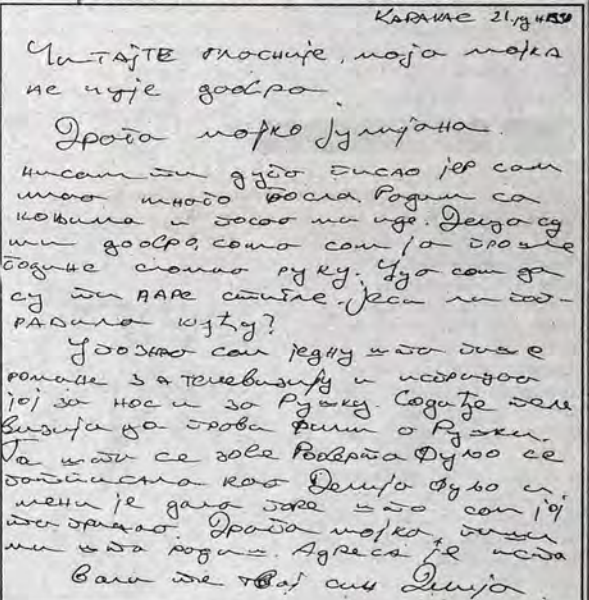 КАРАКАС 21. јун
ЧИТАЈТЕ гласније, моја мајка
не чује добро
Драга мајко Јулијана.
нисам ти дуго писао јер сам
имао много посла. Радим са
коњима и посао ми иде. Деца су
ми добро, само сам ја прошле
године сломио руку. Чуо сам да
су ти ПАРЕ стигле. Јеси ли
кућу?
Упознао сам једну што пише
романе за телевизију и испричао
јој за нос и за Ружу. Сад ће теле
визија да прави филм о Ружи.
Та што се зове Роберта Фуљо се
потписала као Делија Фуљо и
мени је дала паре што сам јој
то причао. Драга мајко, пиши
ми шта радиш. Адреса је иста
Воли те твој син Илија